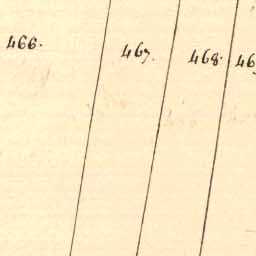 466. 467. 468. 469